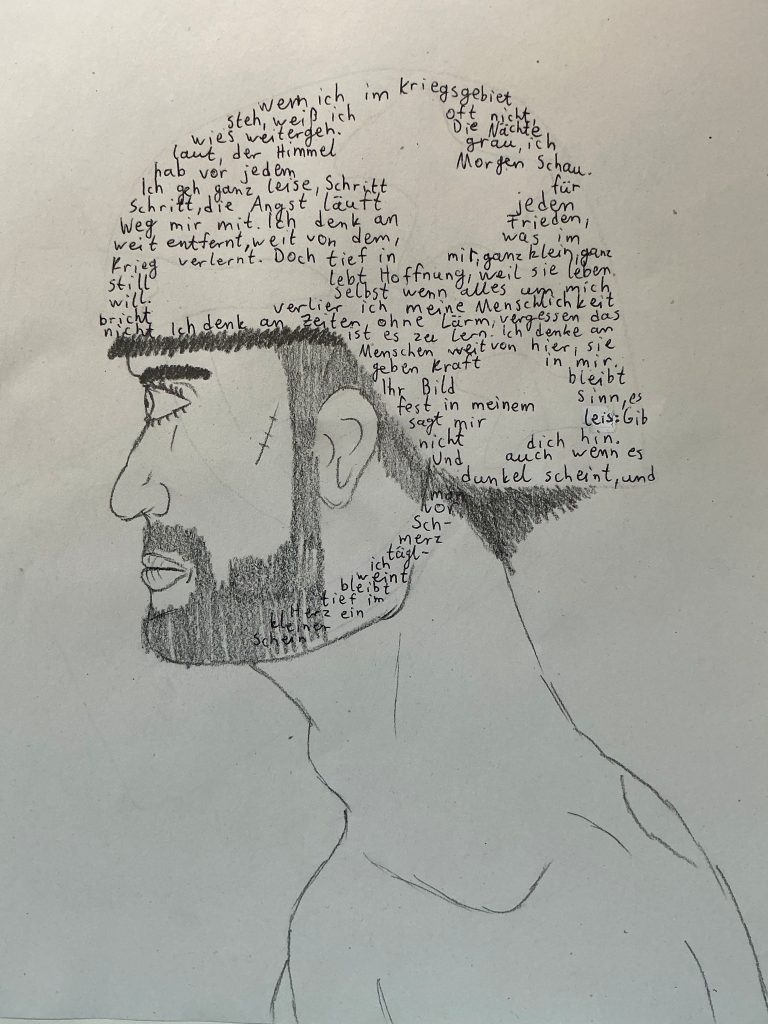 wenn ich im Kriegsgebiet
steh, weiß ich oft nicht,
wies weitergeh. Die Nächte
laut, der Himmel grau, ich
hab vor jedem Morgen Schau.
Ich geh ganz leise, Schritt für
Schritt, die Angst läuft jeden
Weg mir mit. Ich denk an Frieden,
weit entfernt, weit von dem, was im
Krieg verlernt. Doch tief in mir, ganz klein, ganz
still lebt Hoffnung, weil sie leben
will. Selbst wenn alles um mich
bricht verlier ich meine Menschlichkeit
nicht Ich denk an Zeiten ohne Lärm, vergessen das
ist es zu lern. Ich denke an
Menschen weit von hier, sie
geben Kraft in mir.
Ihr Bild bleibt
fest in meinem Sinn, es
sagt mir leis: Gib
nicht dich hin.
Und auch wenn es
dunkel scheint, und
man
vor
Sch-
merz
tägl-
ich
weint
bleibt
tief im
Herz ein
kleiner
Schein